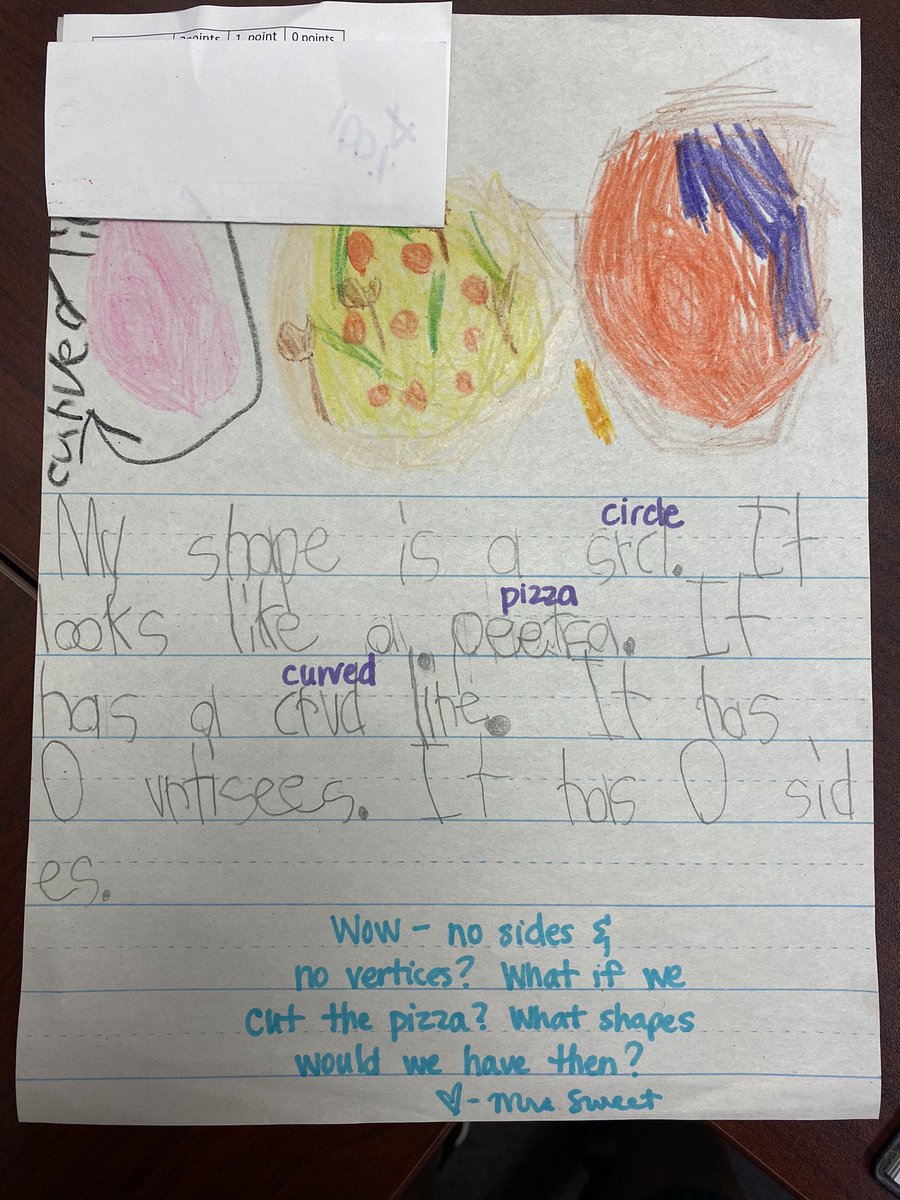 points 1 point 0 points
curved li
circle
My shape is a srcl. It
pizza
looks like a peetsa. It
curved
has a crvd line. It has
0 vrtisees. It has 0 sid
es.
Wow - no sides &
no vertices? What if we
cut the pizza? What shapes
would we have then?
♡- Mrs. Sweet